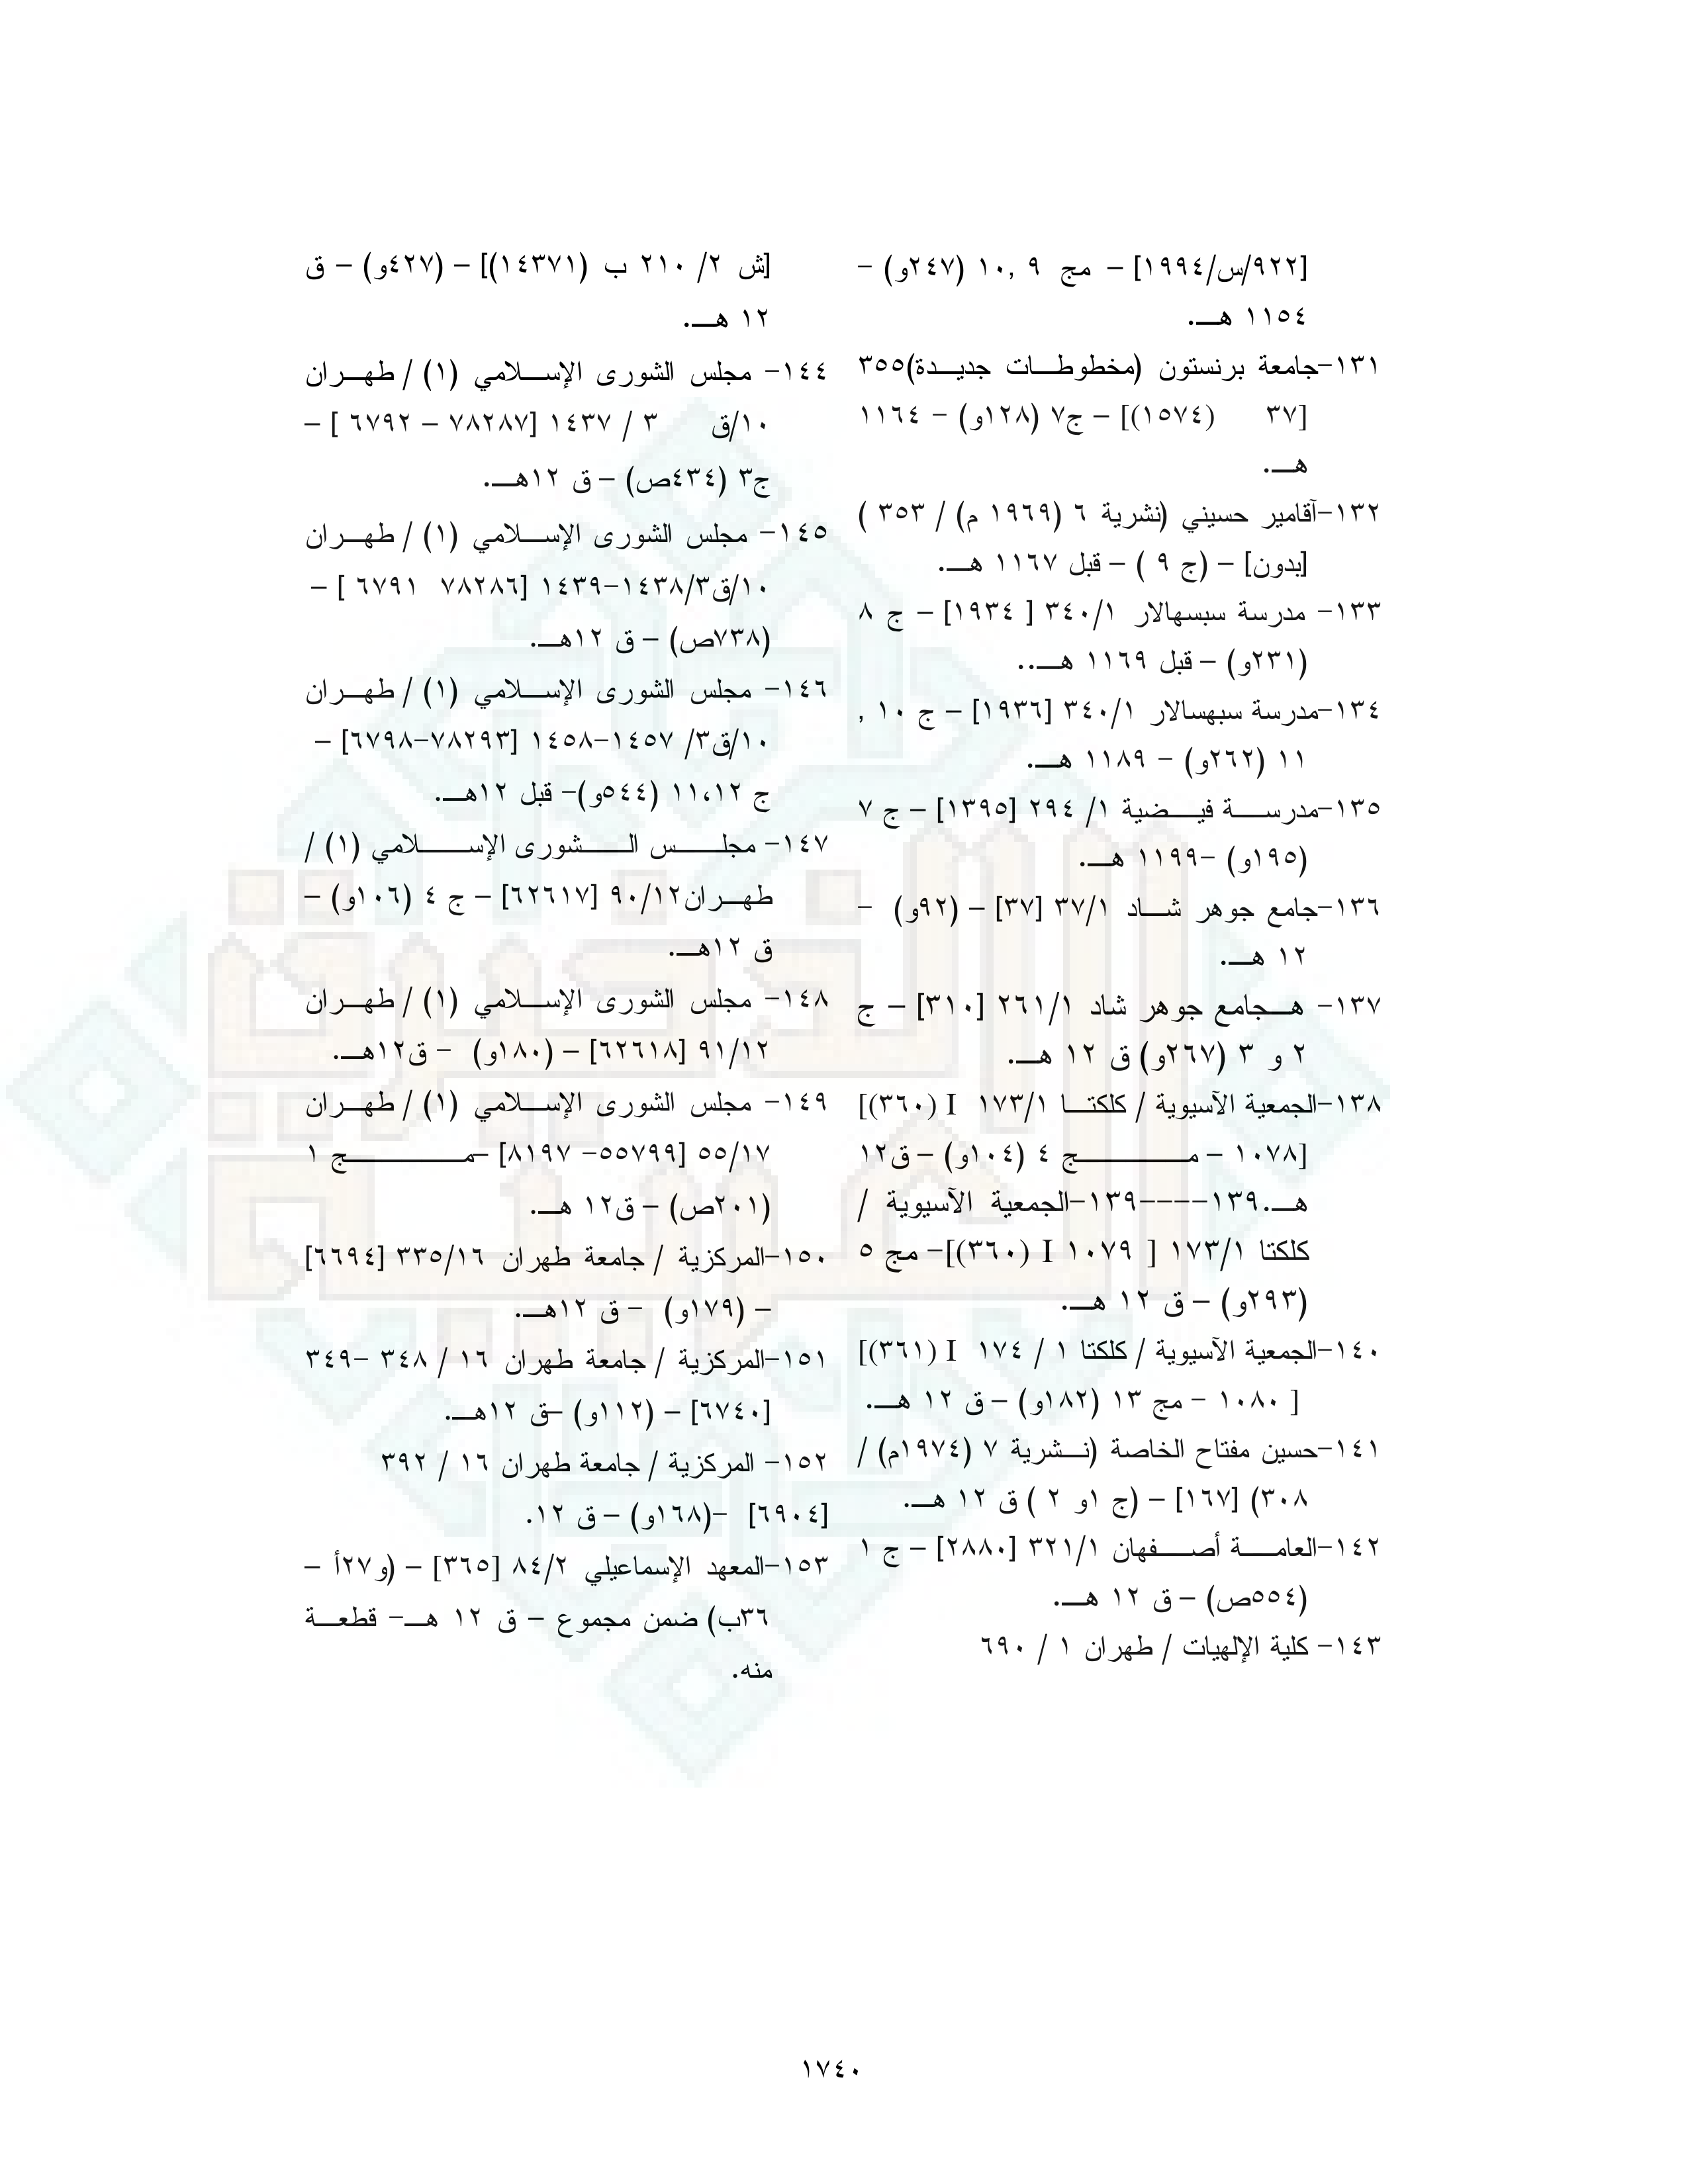 [٩٢٢/س/١٩٩٤] – مج ٩ , ١٠ (٢٤٧و) –
١١٥٤ هـ.
١٣١-جامعة برنستون (مخطوطات جديدة)٣٥٥
[٣٧ (١٥٧٤)] – ج٧ (١٢٨و) – ١١٦٤
هـ.
١٣٢-آقامير حسيني (نشرية ٦ (١٩٦٩ م) / ٣٥٣ )
[بدون] – (ج ٩ ) – قبل ١١٦٧ هـ.
١٣٣- مدرسة سبسهالار ٣٤٠/١ [ ١٩٣٤] – ج ٨
(٢٣١و) – قبل ١١٦٩ هـ..
١٣٤-مدرسة سبهسالار ٣٤٠/١ [١٩٣٦] – ج ١٠ ,
١١ (٢٦٢و) – ١١٨٩ هـ.
١٣٥-مدرسة فيضية ١/ ٢٩٤ [١٣٩٥] – ج ٧
(١٩٥و) –١١٩٩ هـ.
١٣٦-جامع جوهر شاد ٣٧/١ [٣٧] – (٩٢و) –
١٢ هـ.
١٣٧- هـجامع جوهر شاد ٢٦١/١ [٣١٠] – ج
٢ و ٣ (٢٦٧و) ق ١٢ هـ.
١٣٨-الجمعية الآسيوية / كلكتا ١٧٣/١ I (٣٦٠)]
[١٠٧٨ – مج ٤ (١٠٤و) – ق١٢
هـ.١٣٩----١٣٩-الجمعية الآسيوية /
كلكتا ١٧٣/١ [ ١٠٧٩ I (٣٦٠)]– مج ٥
(٢٩٣و) – ق ١٢ هـ.
١٤٠-الجمعية الآسيوية / كلكتا ١ / ١٧٤ I (٣٦١)]
[ ١٠٨٠ – مج ١٣ (١٨٢و) – ق ١٢ هـ.
١٤١-حسين مفتاح الخاصة (نشرية ٧ (١٩٧٤م) /
٣٠٨) [١٦٧] – (ج ١و ٢ ) ق ١٢ هـ.
١٤٢-العامة أصفهان ٣٢١/١ [٢٨٨٠] – ج ١
(٥٥٤ص) – ق ١٢ هـ.
١٤٣- كلية الإلهيات / طهران ١ / ٦٩٠
[ش ٢/ ٢١٠ ب (١٤٣٧١)] – (٤٢٧و) – ق
١٢ هـ.
١٤٤- مجلس الشورى الإسلامي (١) / طهران
١٠/ق ٣ / ١٤٣٧ [٧٨٢٨٧ – ٦٧٩٢ ] –
ج٣ (٤٣٤ص) – ق ١٢هـ.
١٤٥- مجلس الشورى الإسلامي (١) / طهران
١٠/ق٣/١٤٣٨-١٤٣٩ [٧٨٢٨٦ ٦٧٩١ ] –
(٧٣٨ص) – ق ١٢هـ.
١٤٦- مجلس الشورى الإسلامي (١) / طهران
١٠/ق٣/ ١٤٥٧-١٤٥٨ [٧٨٢٩٣-٦٧٩٨] –
ج ١١،١٢ (٥٤٤و)– قبل ١٢هـ.
١٤٧- مجلس الشورى الإسلامي (١) /
طهران٩٠/١٢ [٦٢٦١٧] – ج ٤ (١٠٦و) –
ق ١٢هـ.
١٤٨- مجلس الشورى الإسلامي (١) / طهران
٩١/١٢ [٦٢٦١٨] – (١٨٠و) – ق١٢هـ.
١٤٩- مجلس الشورى الإسلامي (١) / طهران
٥٥/١٧ [٥٥٧٩٩- ٨١٩٧] –مج ١
(٢٠١ص) – ق١٢ هـ.
١٥٠-المركزية / جامعة طهران ٣٣٥/١٦ [٦٦٩٤]
– (١٧٩و) – ق ١٢هـ.
١٥١-المركزية / جامعة طهران ١٦ / ٣٤٨ –٣٤٩
[٦٧٤٠] – (١١٢و) –ق ١٢هـ.
١٥٢- المركزية / جامعة طهران ١٦ / ٣٩٢
[٦٩٠٤] –(١٦٨و) – ق ١٢.
١٥٣-المعهد الإسماعيلي ٨٤/٢ [٣٦٥] – (و٢٧أ –
٣٦ب) ضمن مجموع – ق ١٢ هـ– قطعة
منه.
١٧٤٠